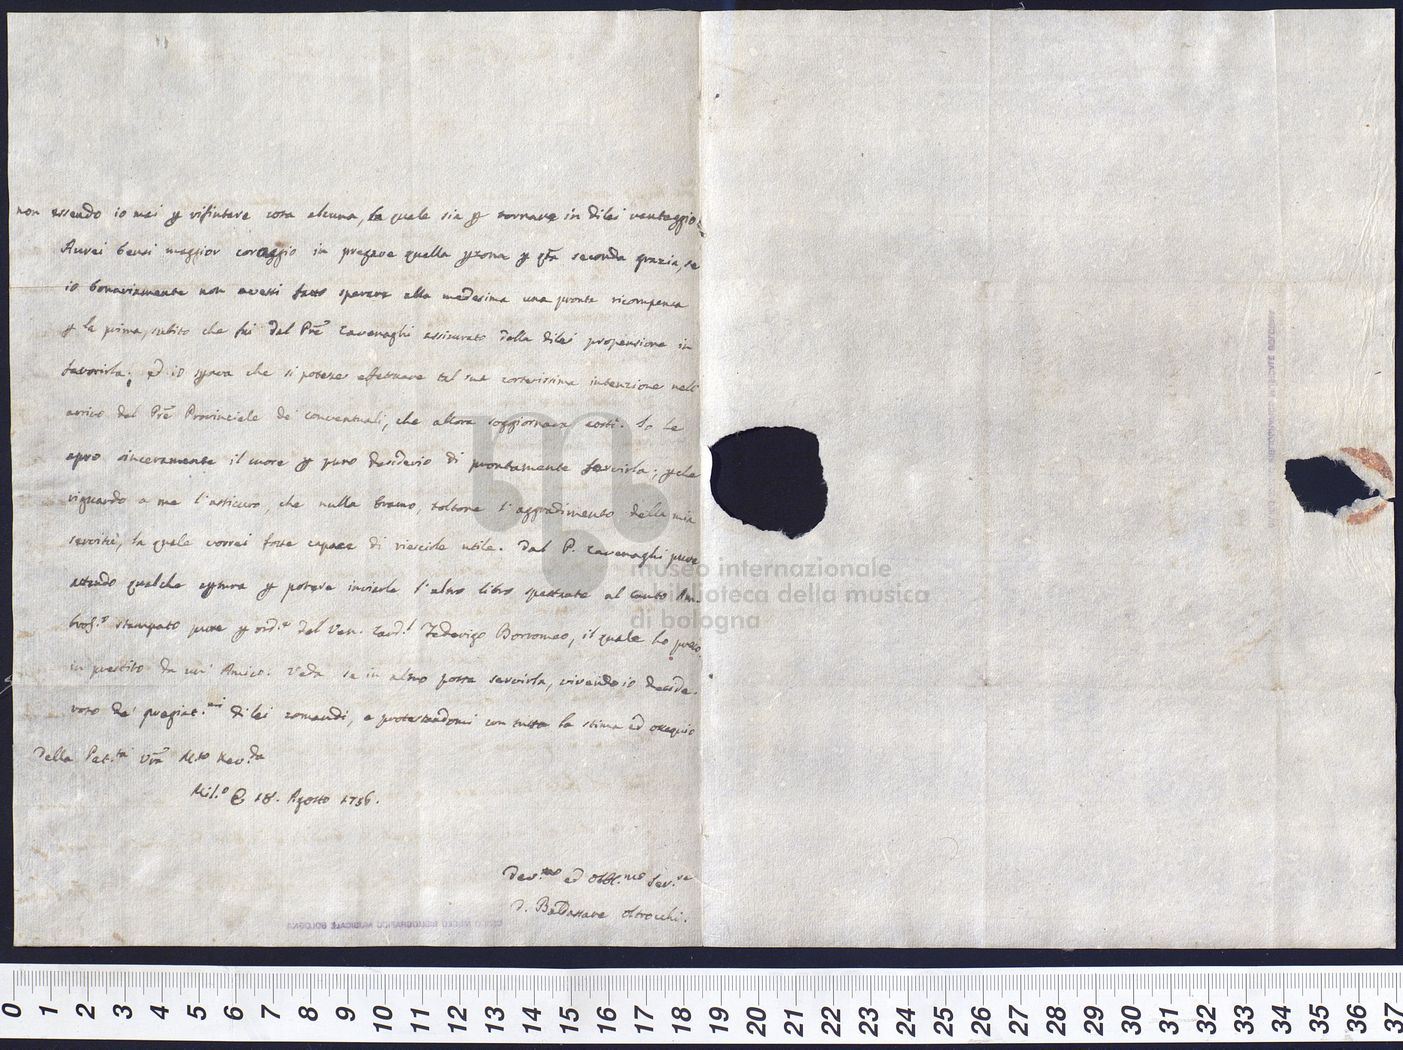 non essendo io mai p rifiutare cosa alcuna, la quale sia p tornare in dilei vantaggio.
Aurei bensi maggior coraggio in pregare quella psona p qta seconda grazia, se
io bonariamente non avessi fatto sperare alla medesima una pronta ricompensa
p la prima, subito che fui dal Pre Cavenaghi assicurato della dilei propensione in
favorirla; ed io spava che si potesse effettuare tal sua cortesissima intenzione nell'
arrivo del Pre Provinciale de' Conventuali, che allora soggiornava costi. Io le
apro sinceramente il cuore p puro desiderio di prontamente servirla; pche
riguardo a me l'assicuro, che nulla bramo, toltone l'aggradimento della mia
servitù, la quale vorrei fosse capace di riescirle utile. Dal P. Cavenaghi pure
attendo qualche apptura p potere inviarle l'altro libro spettante al Canto Am-
bros.o stampato pure p ord.e del Ven. Card.l Federigo Borromeo, il quale ho preso
in prestito da un' Amico. Veda se in altro possa servirla, vivendo io deside-
roso de' pregiat.mi dilei comandi, e protestandomi con tutta la stima ed ossequio
Della Pat.tà Vra M.to Rev.da
Mil.o 18. Agosto 1756.
Dev.mo ed Obbl.mo Ser.re
D. Baldassare Oltrocchi.
CIVICO MUSEO BIBLIOGRAFICO MUSICALE BOLOGNA
museo internazionale
e biblioteca della musica
di bologna
0 1 2 3 4 5 6 7 8 9 10 11 12 13 14 15 16 17 18 19 20 21 22 23 24 25 26 27 28 29 30 31 32 33 34 35 36 37